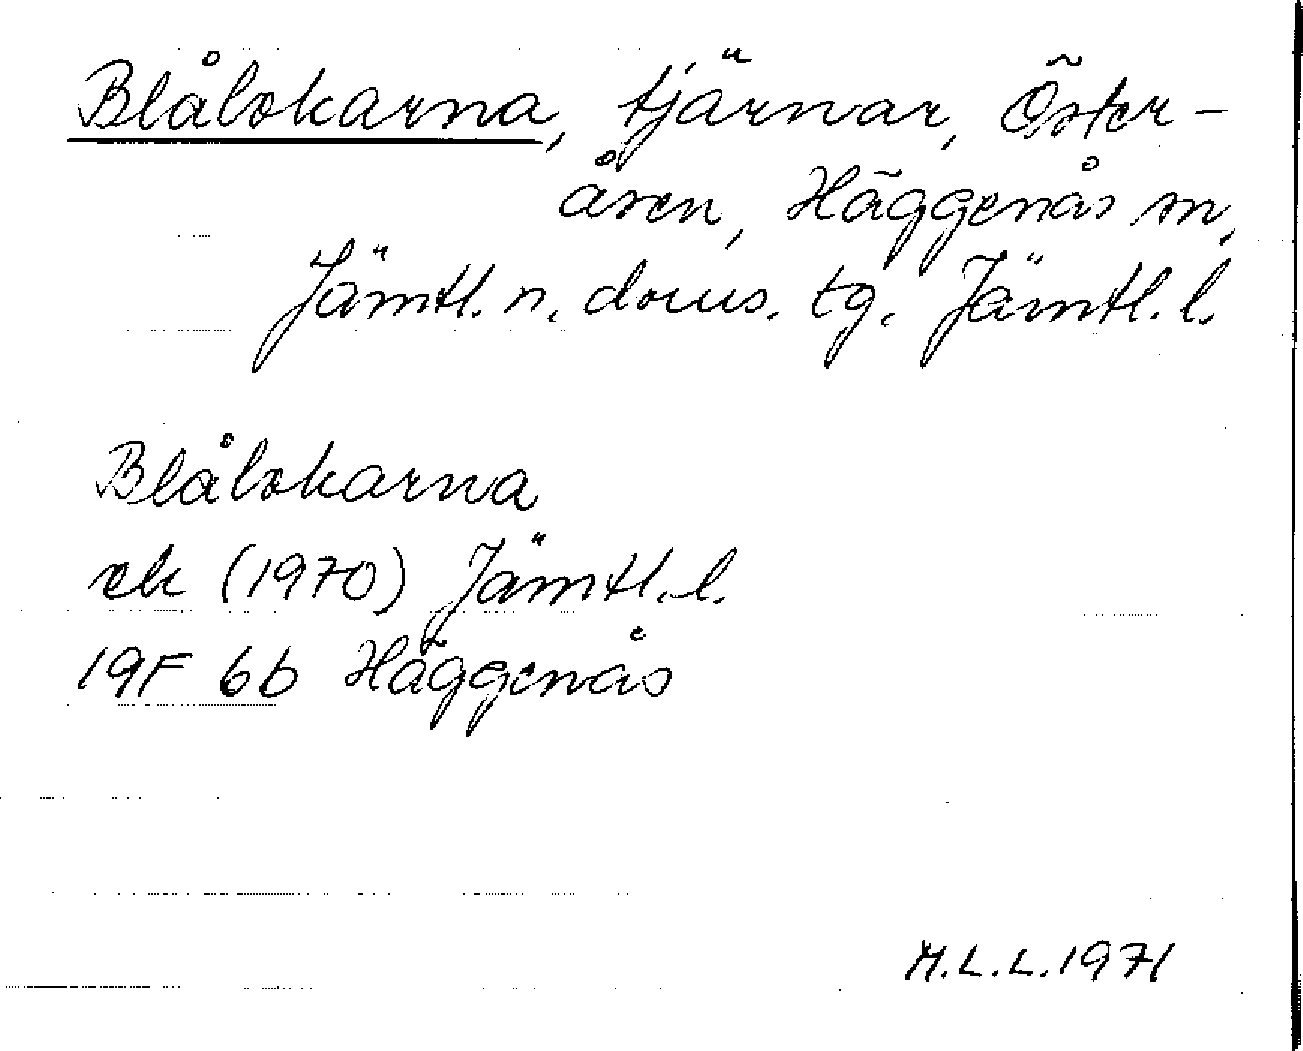 Blålokarna, tjärnar, Öster-
åsen, Häggenås sn,
Jämtl. n. doms. tg. Jämtl. l.
Blålokarna
ek (1970) Jämtl. l.
19F 6b Häggenås
M.L.L. 1971